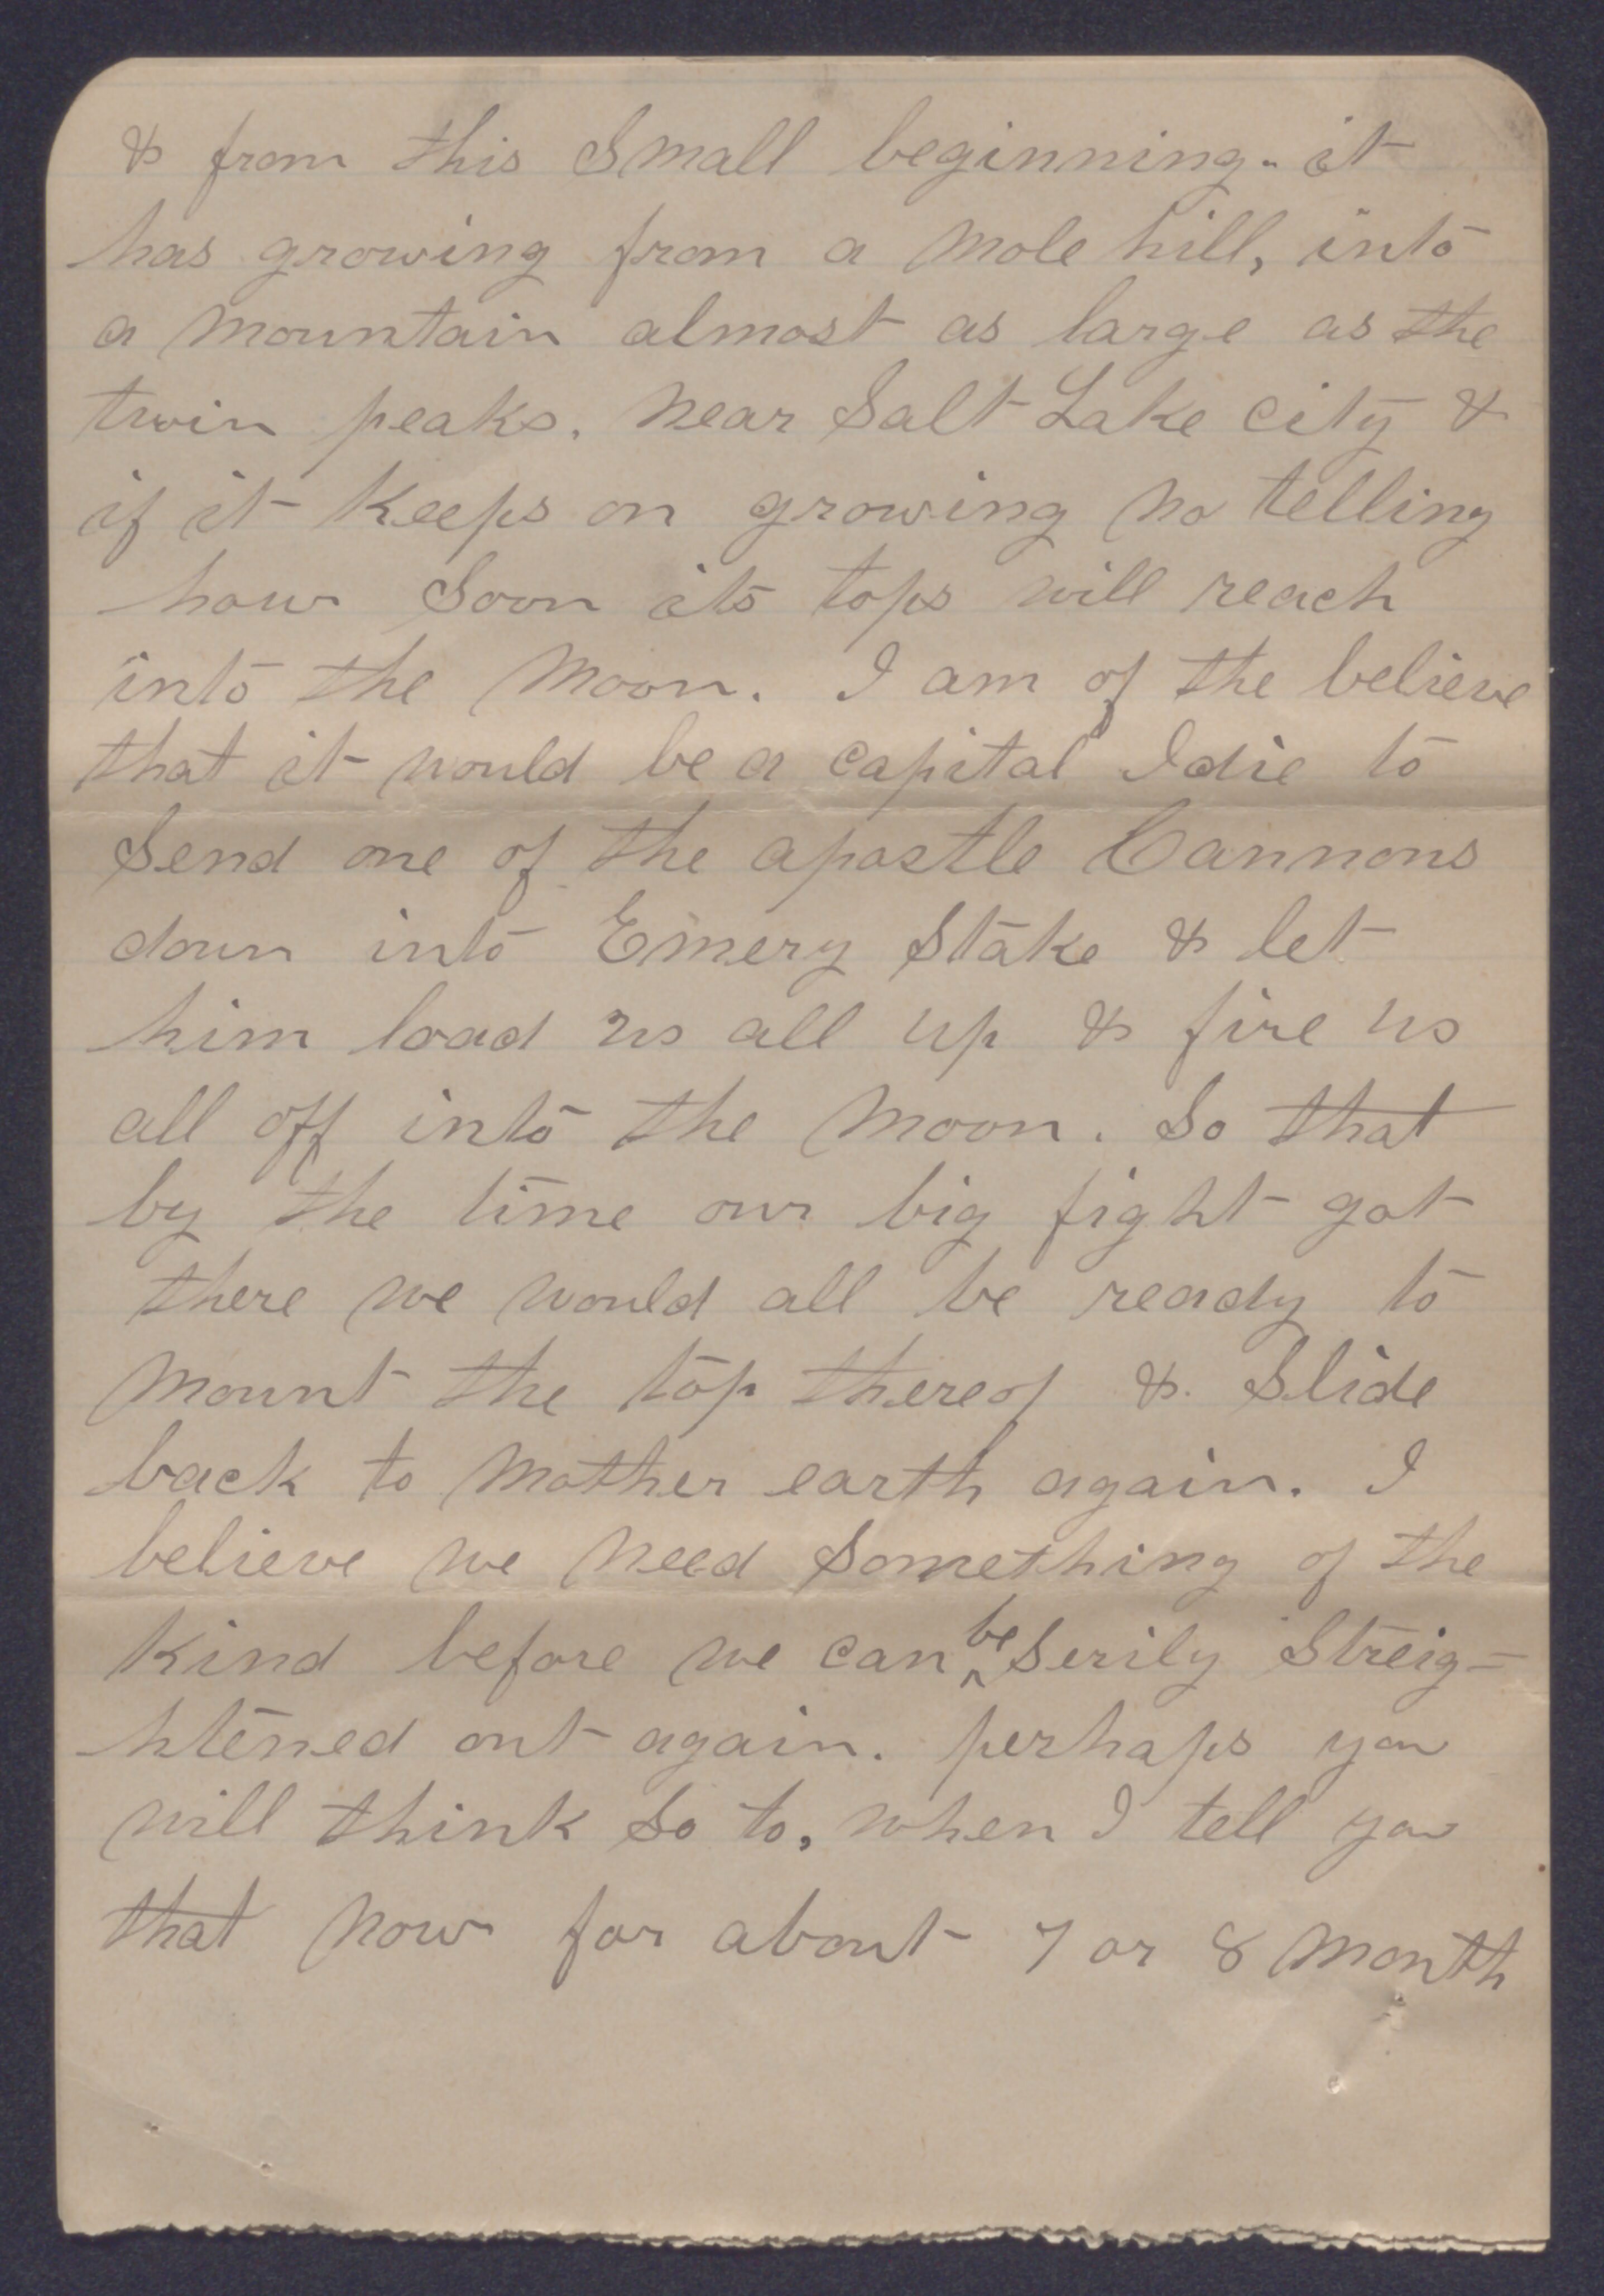 & from this Small beginning. it
has growing from a mole hill, into
a mountain almost as large as the
twin peaks. near Salt Lake city &
if it Keeps on growing no telling
how Soon its tops will reach
into the moon. I am of the believe
that it would be a capital Idie to
Send one of the apostle Cannons
down into Emery Stake & let
him load us all up & fire us
all off into the moon. So that
by the time our big fight got
there we would all be ready to
mount the top thereof & Slide
back to mother earth again. I
believe we need Something of the
Kind before we can be Serily Streig-
htened out again. perhaps you
will think So to, when I tell you
that now for about 7 or 8 month